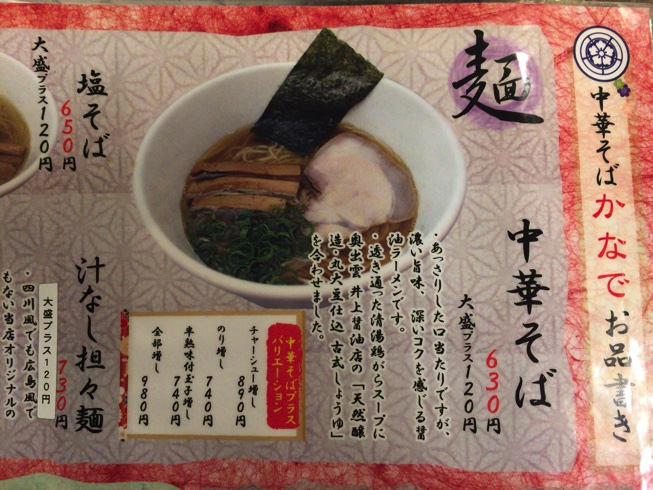 中華そばかなでお品書き
麺
中華そば
630円
大盛プラス120円
・あっさりした口当たりですが、
濃い旨味、深いコクを感じる醤
油ラーメンです。
・透き通った清湯鶏がらスープに
奥出雲 井上醤油店の「天然醸
造・丸大豆仕込 古式しょうゆ」
を合わせました。
中華そばプラス
バリエーション
チャーシュー増し
890円
のり増し
740円
半熟味付玉子増し
740円
全部増し
980円
塩そば
650円
大盛プラス120円
汁なし担々麺
730円
大盛プラス120円
・四川風でも広島風で
もない当店オリジナルの